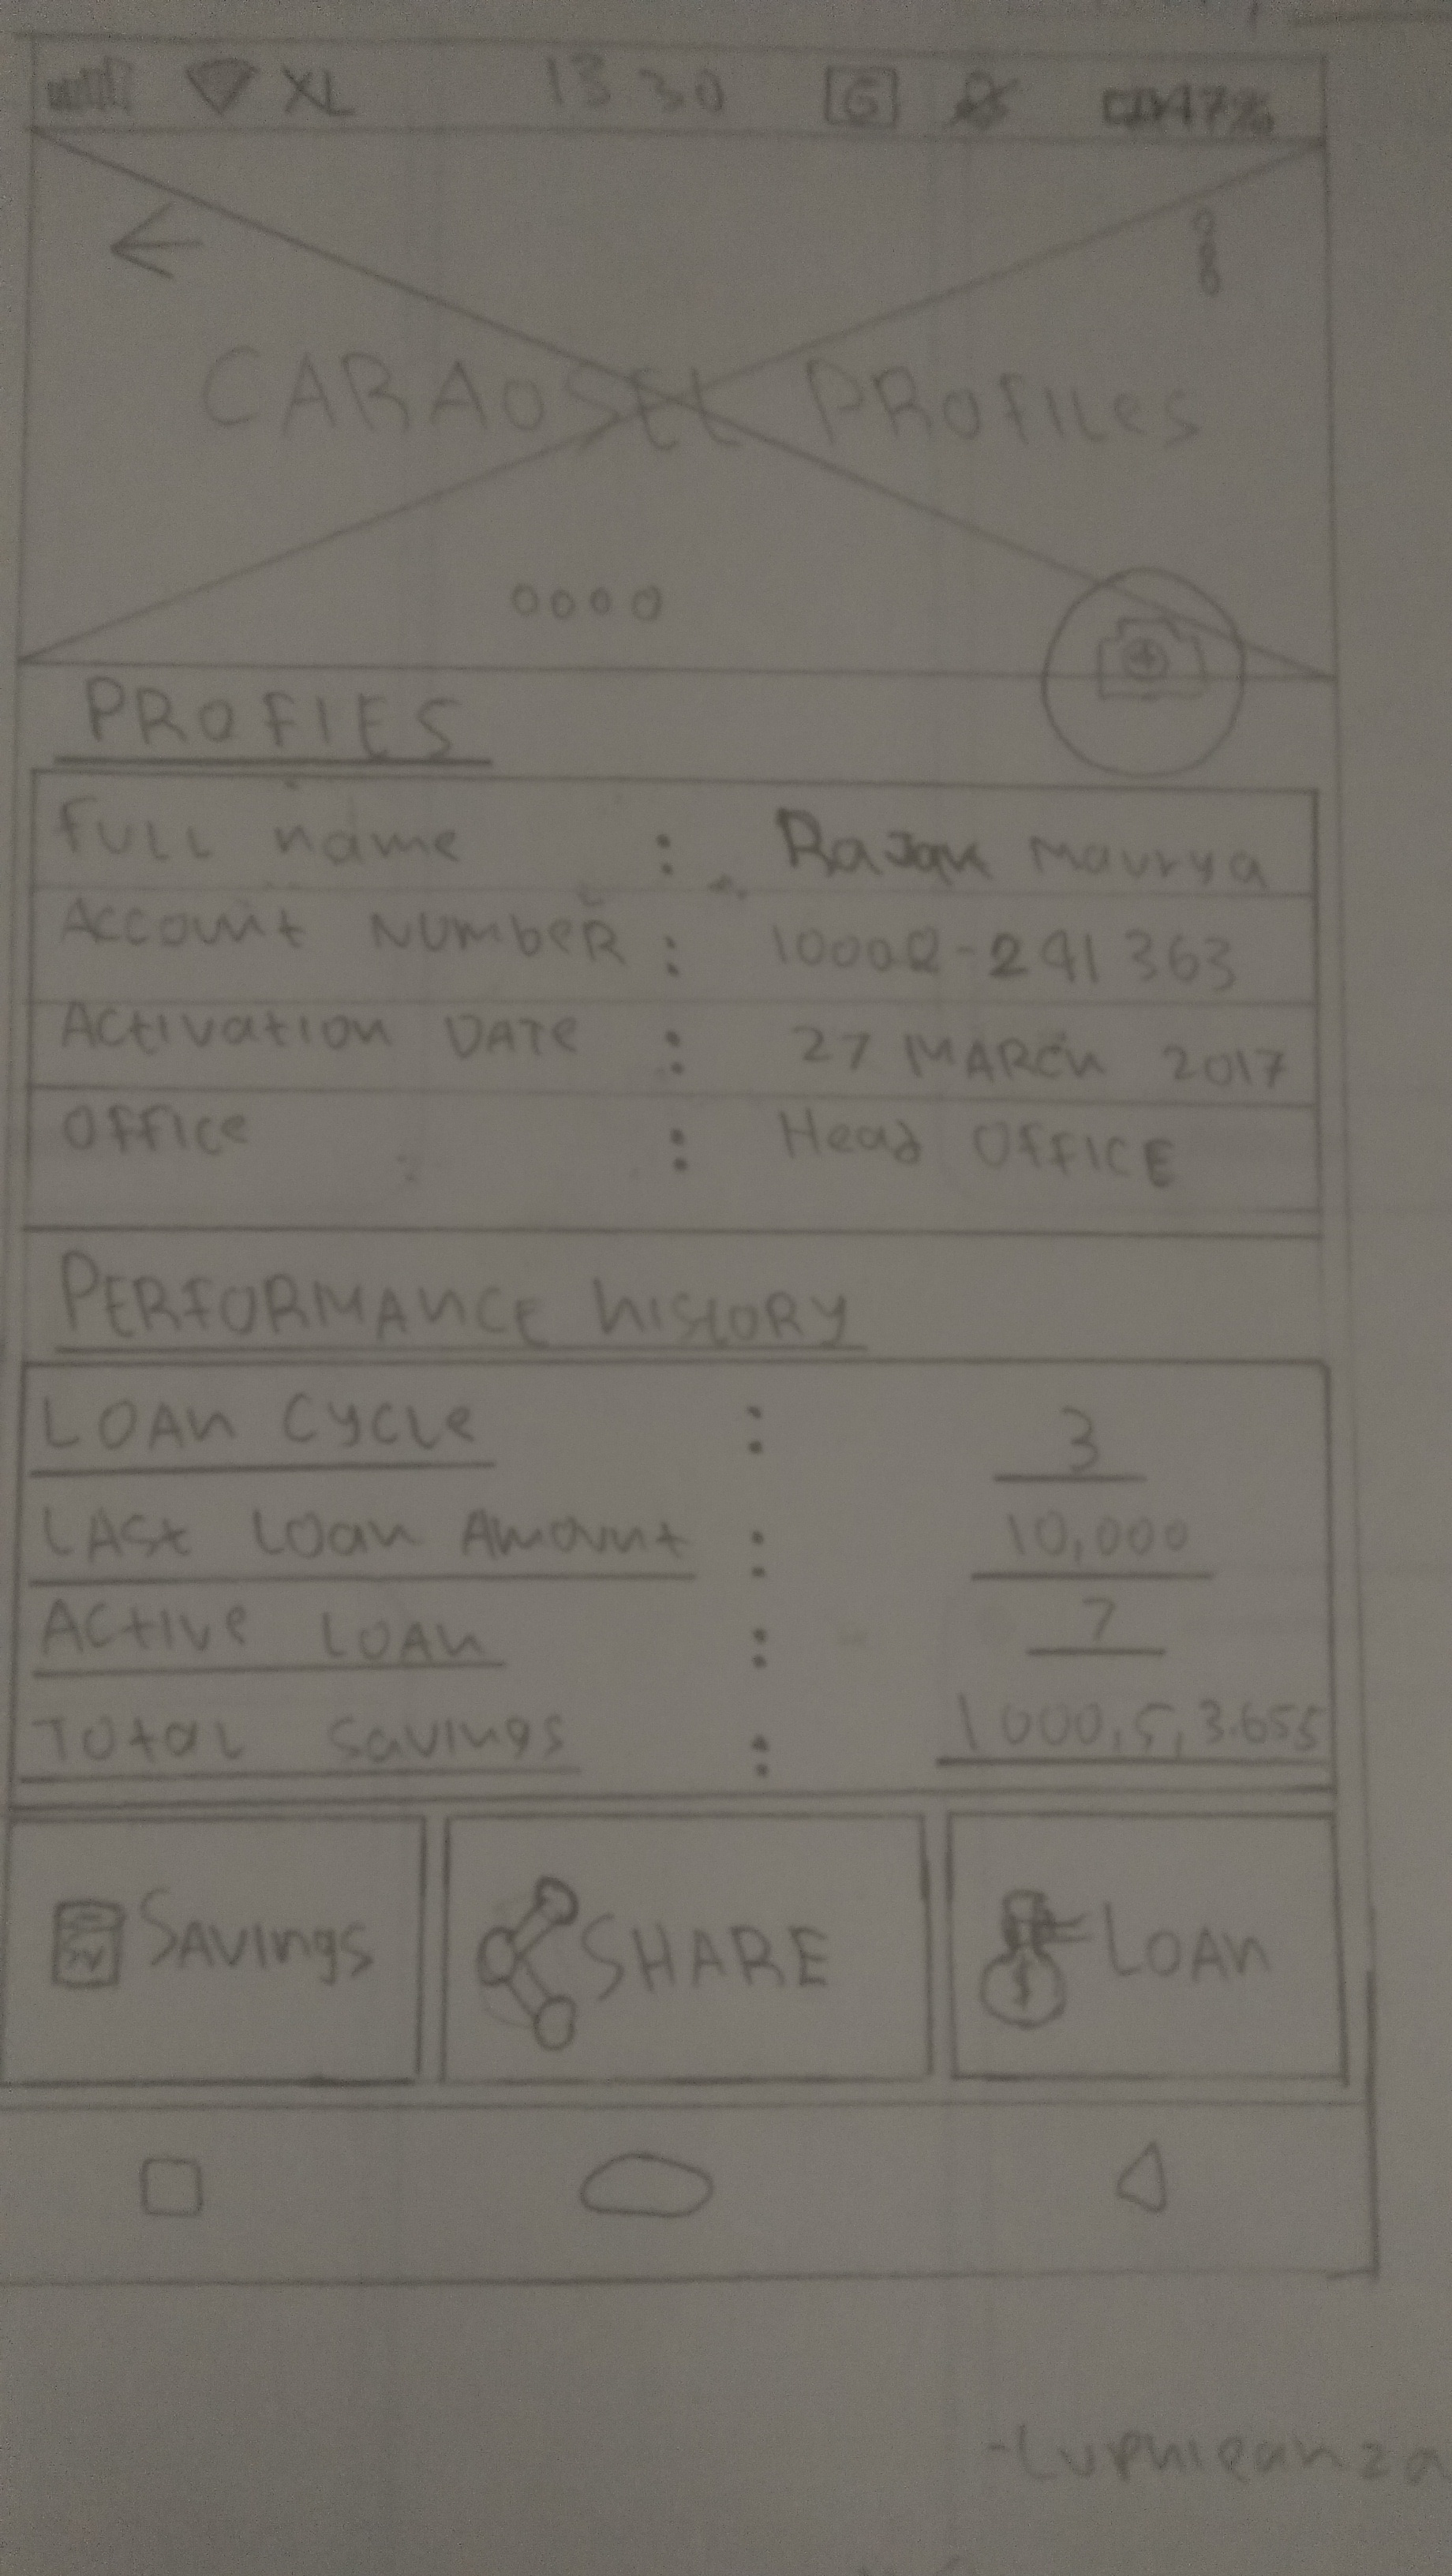 XL 13 30 G 47%
CARAOSEL PROfILes
PROFIES
fULL name : Rajak Maurya
Account NUMbeR : 10002-241 363
Activation DATe : 27 MARCh 2017
Office : Head OffICE
PERfORMANCE hISTORY
LOAn CYCLe : 3
LASt Loan Amount : 10,000
Active LOAn : 7
Total savings : 1000,5,3.655
SAVIngs SHARE LOAn
-Luphieanza